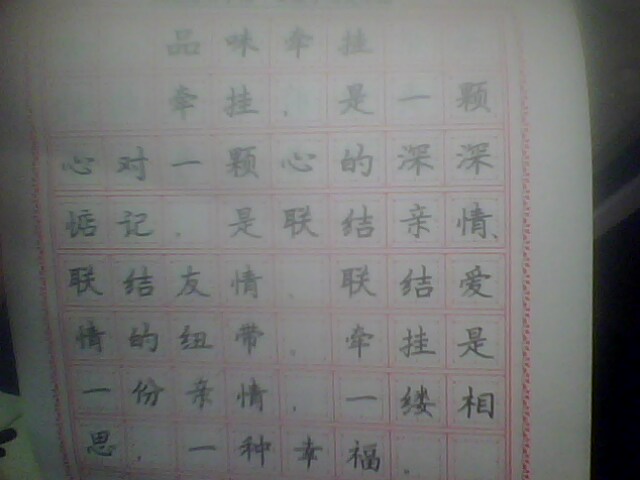 品味牵挂
牵挂，是一颗
心对一颗心的深深
惦记，是联结亲情、
联结友情、联结爱
情的纽带。牵挂是
一份亲情，一缕相
思，一种幸福。